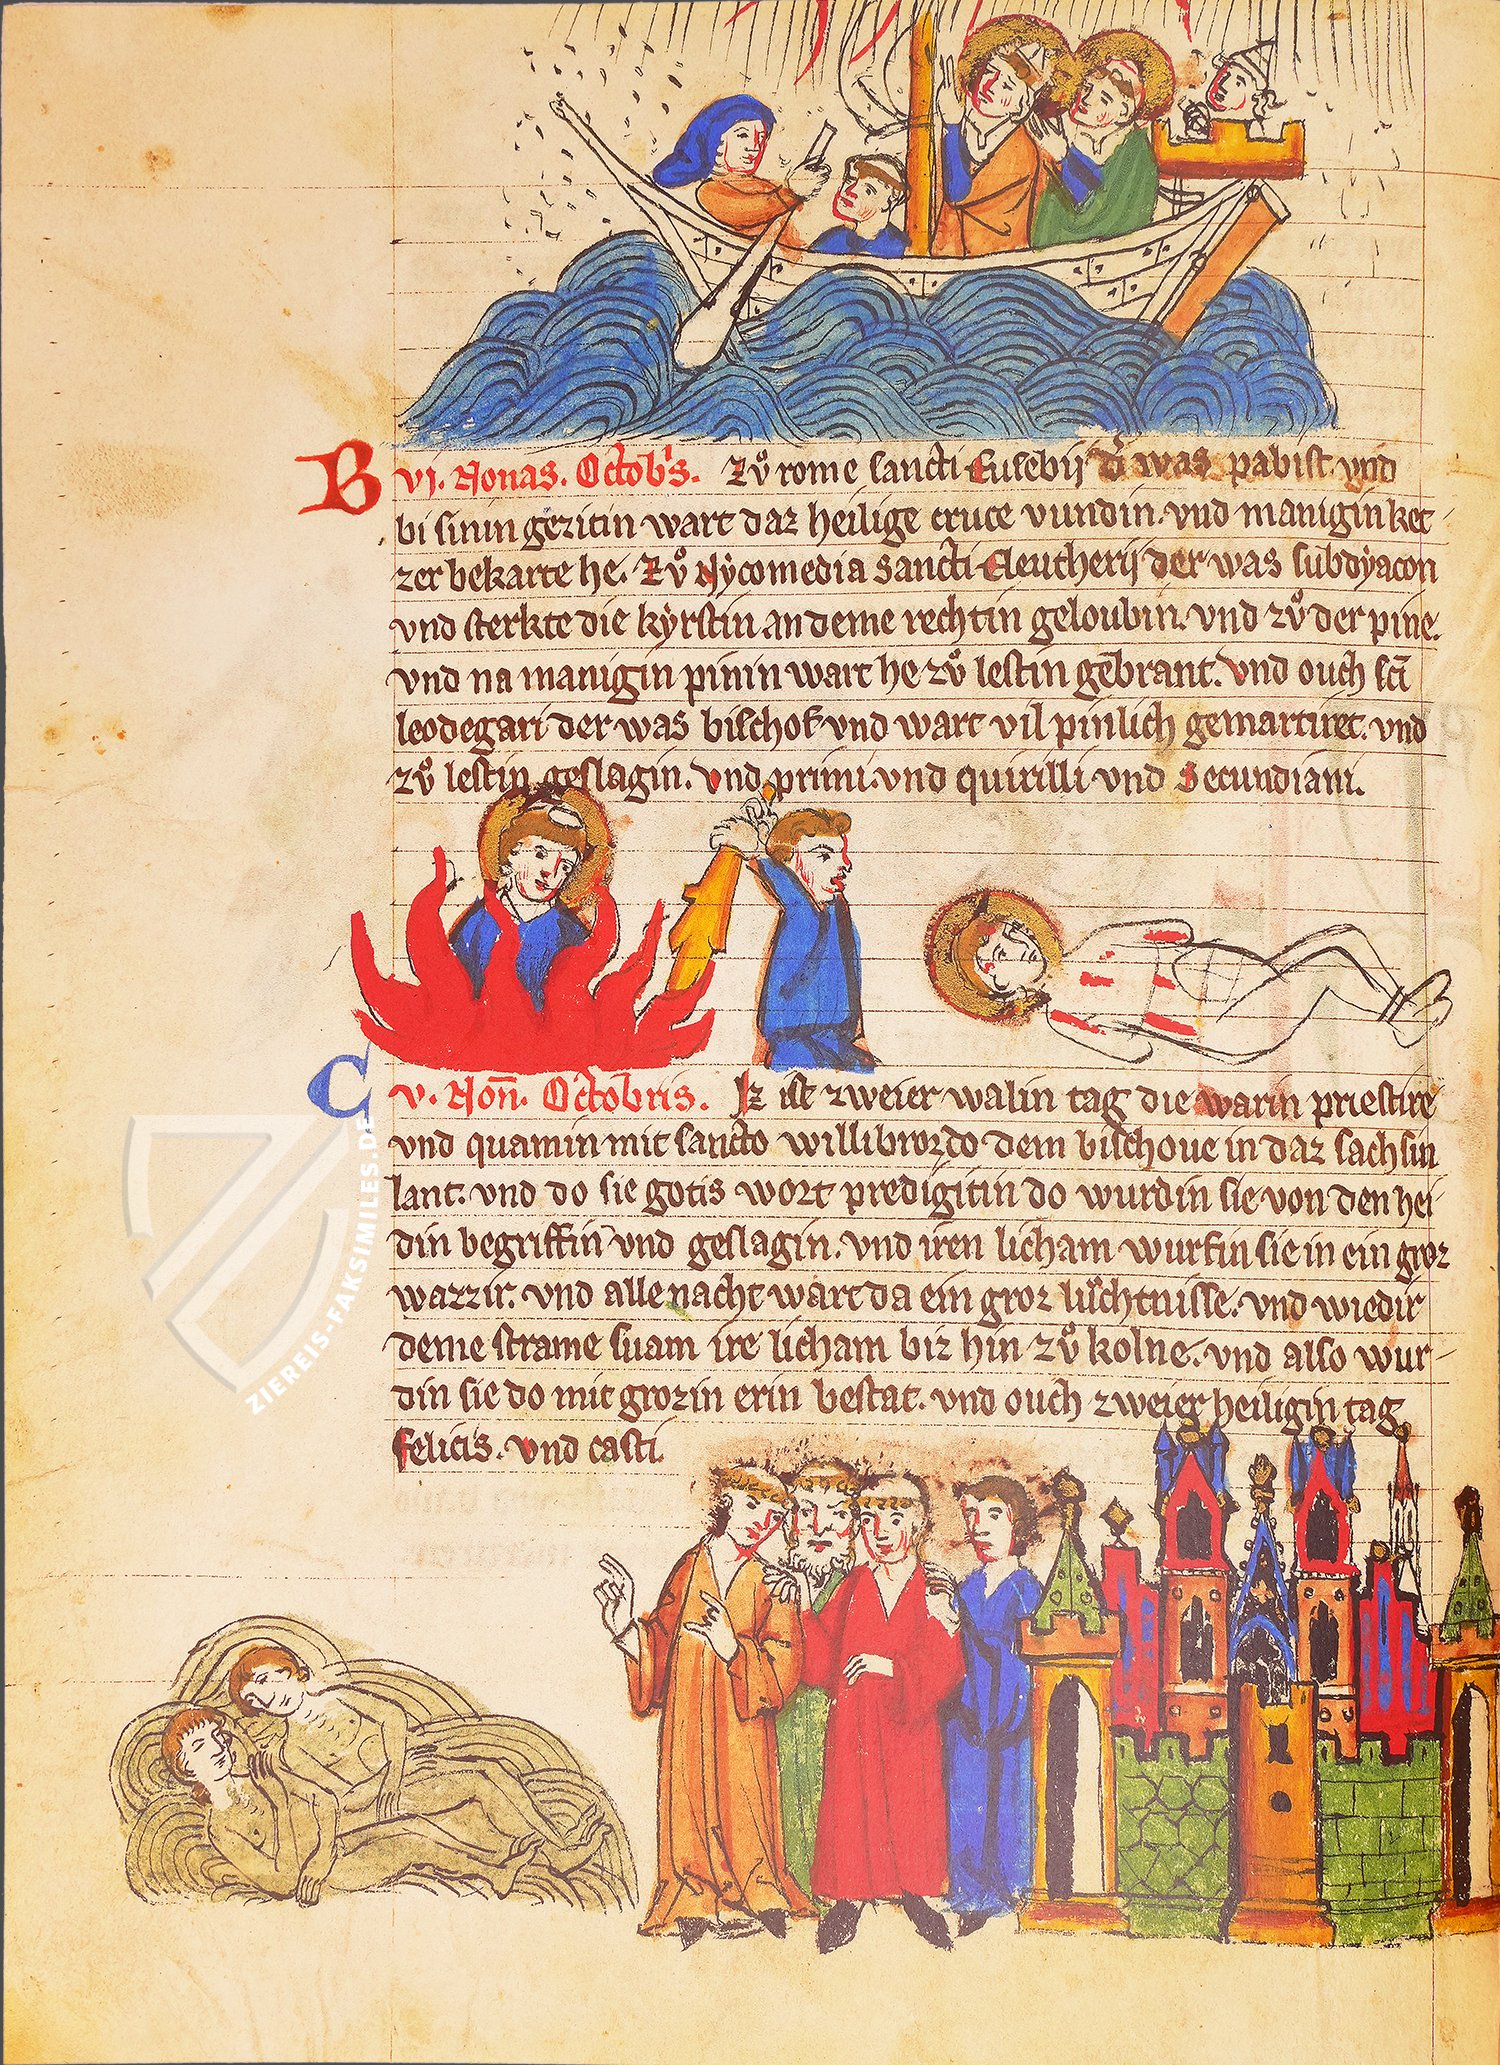 B vi. Nonas. Octob's. Zuͦ rome sancti Eusebij d' was pabist. vnd
bi sinin gezitin wart daz heilige cruce vundin. vnd manigin ket
zer bekarte he. Zuͦ Nycomedia sancti Eleutherij der was subdyacon
vnd sterkte die kyrstin an deme rechtin geloubin. vnd zuͦ der pine.
vnd na manigin pinin wart he zuͦ lestin gebrant. vnd ouch sct̄i
leodegari der was bischof vnd wart vil pinlich gemartiret. vnd
zuͦ lestin geslagin. vnd primi vnd quirilli vnd Secundiani.
C v. Non̄. Octobris. Iz ist zweier walin tag die warin priestire
vnd quamin mit sancto willibrordo dem bischoue in daz sachsin
lant. vnd do sie gotis wort predigitin do wurdin sie von den hei-
din begriffin vnd geslagin. vnd iren licham wurfin sie in ein groz
wazzir. vnd alle nacht wart da ein groz luͤchtnisse. vnd wiedir
deme strame suam ire licham biz hin zuͦ kolne. vnd also wur-
din sie do mit grozin erin bestat. vnd ouch zweier heiligin tag
felicis. vnd casti.
ZIEREIS-FAKSIMILES.DE